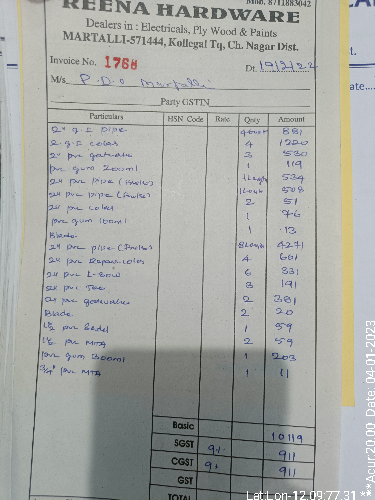 Mob. 8711883042
REENA HARDWARE
Dealers in : Electricals, Ply Wood & Paints
MARTALLI-571444, Kollegal Tq, Ch. Nagar Dist.
Invoice No. 1768 Dt. 19/2/24
M/s P.D.O Martalli
Party GSTIN
Particulars HSN Code Rate Qnty Amount
2" g.I pipe 881
2" g.I 4 1220
2" pvc 3 530
pvc gum 200ml 1 119
2" pvc pipe 1 534
2" pvc pipe 508
2" pvc 2 51
pvc gum 100ml 1 76
Blade 1 13
2" pvc pipe 4271
2" pvc 4 601
2" pvc L-Bow 6 331
2" pvc Tee 3 191
2" pvc 2 381
Blade 2 20
1½ pvc 1 59
1½ pvc MTA 2 59
pvc gum 1 203
3/4" pvc MTA 1 11
Basic 10119
SGST 9% 911
CGST 9% 911
GST
TOTAL
Lat Lon-12.09,77.31
***Acur.20.00 Date: 04-01-2023